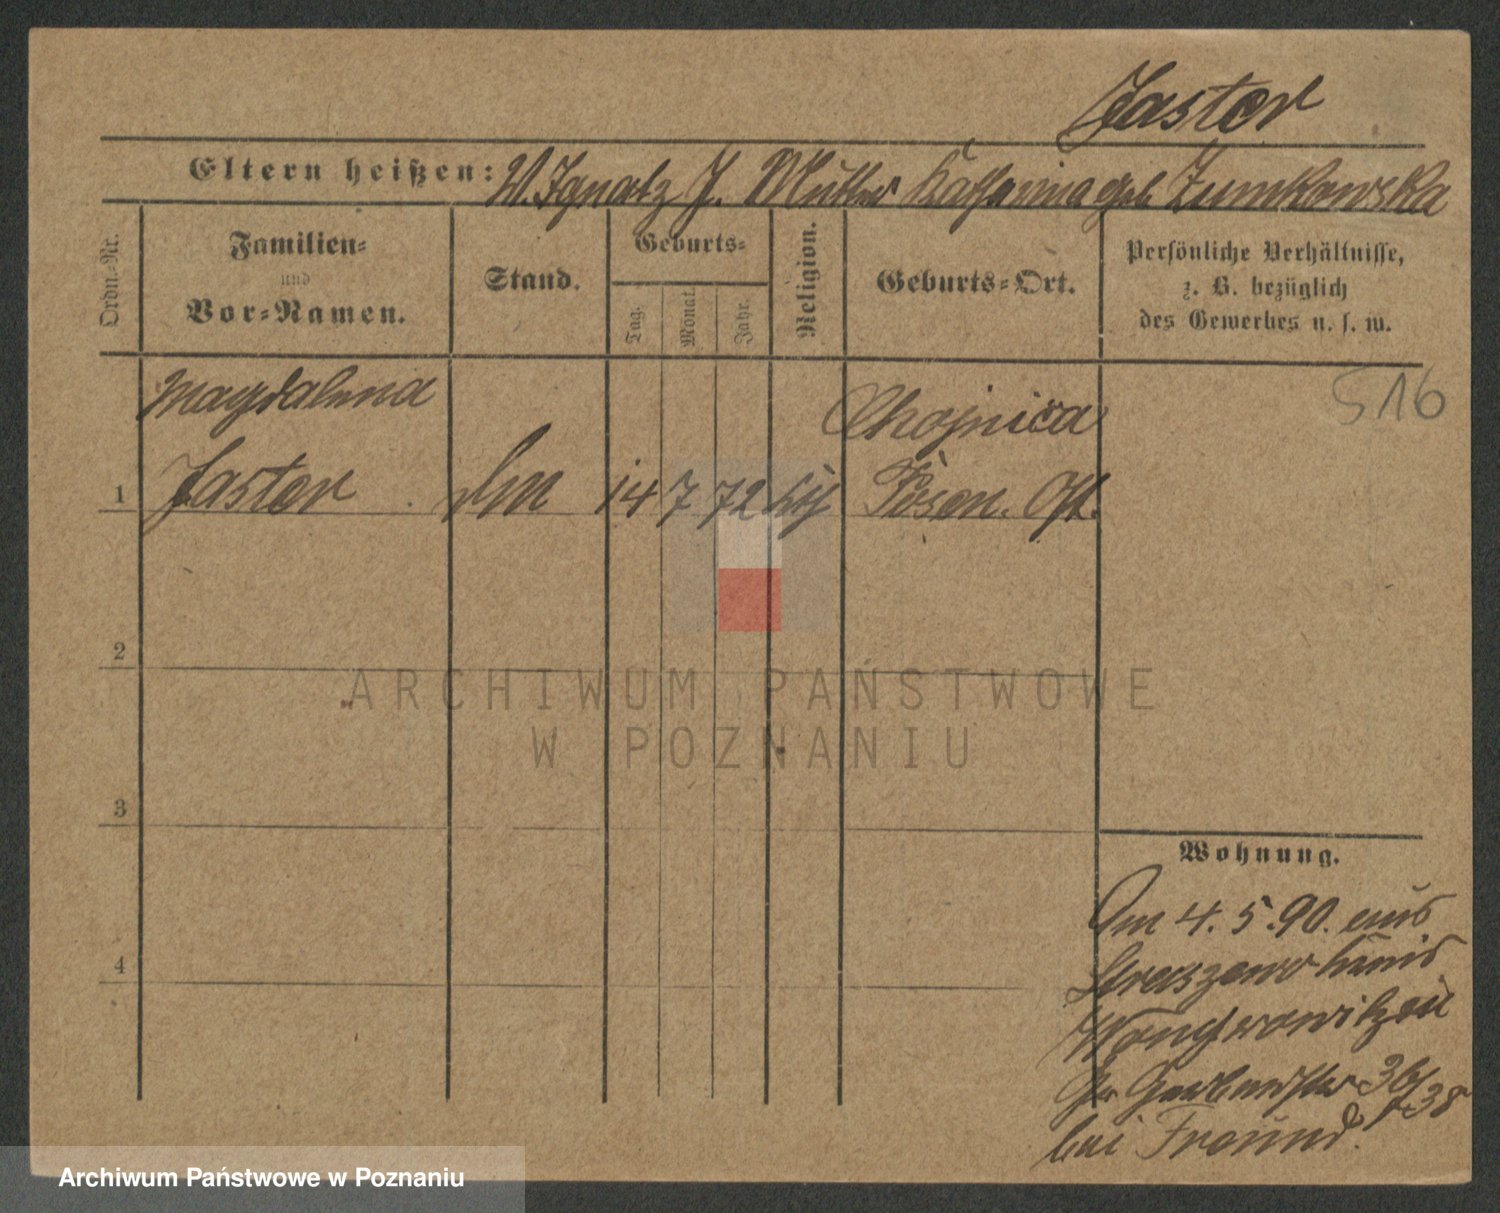 Jastor
Eltern heißen: V. Ignatz J. Mutter Katharina geb Zumkowska
Ordn.-Nr.
Familien-
und
Vor-Namen.
Stand.
Geburts-
Tag.
Monat.
Jahr.
Religion.
Geburts-Ort.
Persönliche Verhältnisse,
z. B. bezüglich
des Gewerbes u. s. w.
516
Magdalena
Chojnica
1 Jastor 14 7 72 Posen. Ost.
2
ARCHIWUM PAŃSTWOWE
W POZNANIU
3
Wohnung.
Am 4. 5. 90. aus
4
Kreis
Wongrowitz
Gr Gerberstr 36/38
bei Freund.
Archiwum Państwowe w Poznaniu